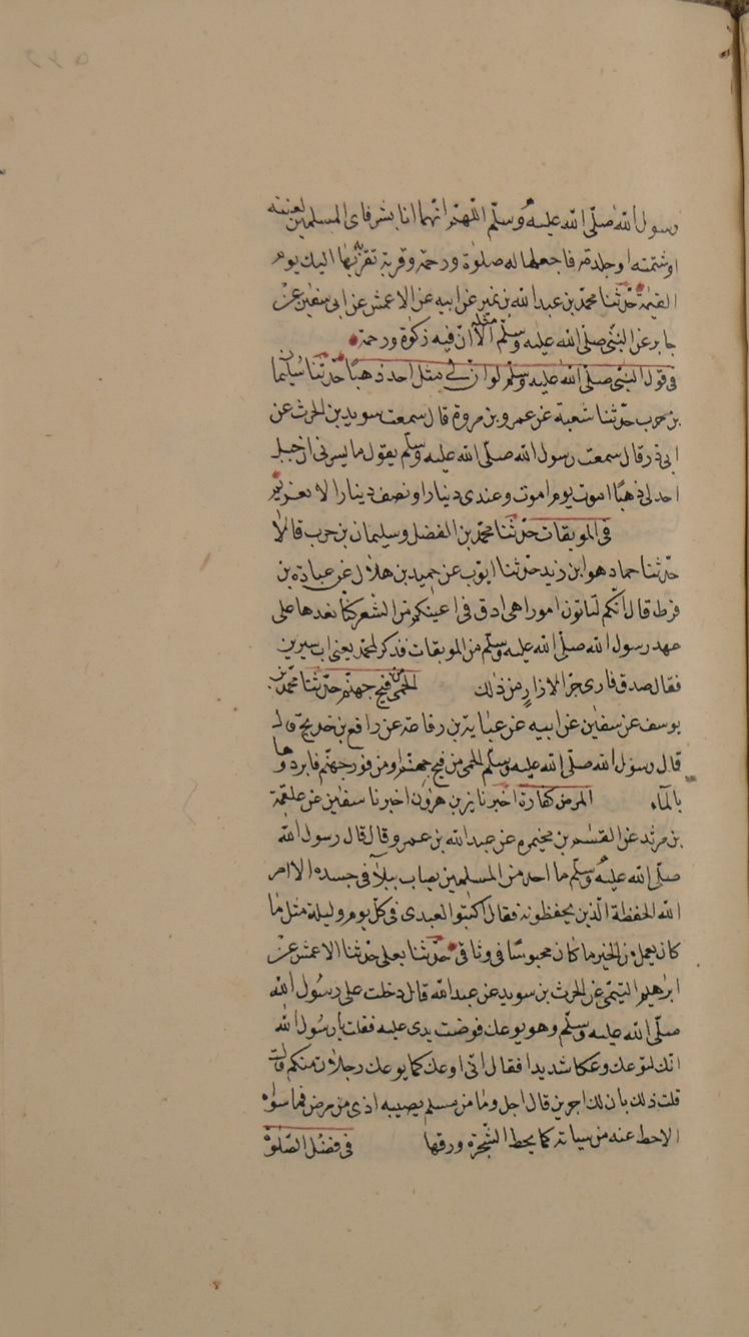 رسول الله صلّى الله عليه وسلّم اللهم انما انا بشر فاى المسلمين لعنته
او شتمته او جلدته فاجعلها له صلوة ورحمة وقربة تقربه بها اليك يوم
القيمة حدّثنا محمّد بن عبد الله بن نمير عن ابيه عن الاعمش عن ابى سفين عن
جابر عن النبى صلى الله عليه وسلّم مثله الا ان فيه زكوة ورحمة
فى قول النبى صلّى الله عليه وسلّم لو ان لى مثل احد ذهبا حدّثنا سليمان
بن حرب حدّثنا شعبة عن عمرو بن مروة قال سمعت سويد بن الحرث عن
ابى ذر قال سمعت رسول الله صلّى الله عليه وسلّم يقول ما يسرنى ان جبل
احد لى ذهبا اموت يوم اموت وعندى دينار او نصف دينار الا لغريم
فى الموبقات حدّثنا محمّد بن الفضل وسليمان بن حرب قالا
حدّثنا حماد هو ابن زيد حدّثنا ايّوب عن حميد بن هلال عن عبادة بن
قرط قال انّكم لتاتون امورا هى ادق فى اعينكم من الشعر كنّا نعدها على
عهد رسول الله صلّى الله عليه وسلّم من الموبقات فذكر لمحمّد يعنى ابن سيرين
فقال صدق فارى جرّ الازار من ذلك الحمى من فيح جهنّم حدّثنا محمّد بن
يوسف عن سفين عن ابيه عن عباية بن رفاعة عن رافع بن خديج قال
قال رسول الله صلّى الله عليه وسلّم الحمى من فيح جهنّم او من فور جهنّم فابردوها
بالماء المرض كفارة اخبرنا يزيد بن هرون اخبرنا سفين عن علقمة
بن مرثد عن القسم بن مخيمرة عن عبد الله بن عمرو قال قال رسول الله
صلّى الله عليه وسلّم ما احد من المسلمين يصاب ببلاء فى جسده الا امر
الله الحفظة الّذين يحفظونه فقال اكتبوا لعبدى فى كلّ يوم وليلة مثل ما
كان يعمل من الخير ما كان محبوسا فى وثاقى حدّثنا يعلى حدّثنا الاعمش عن
ابرهيم التيمى عن الحرث بن سويد عن عبد الله قال دخلت على رسول الله
صلّى الله عليه وسلّم وهو يوعك فوضعت يدى عليه فقلت يا رسول الله
انّك لتوعك وعكا شديدا فقال انّى اوعك كما يوعك رجلان منكم قال
قلت ذلك بان لك اجرين قال اجل وما من مسلم يصيبه اذى من مرض فما سواه
الا حط عنه من سيئاته كما يحط الشّجرة ورقها فى فضل الصّلوة